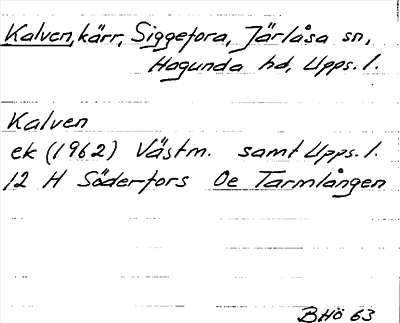 Kalven, kärr, Siggefora, Järlåsa sn,
Hagunda hd, Upps. l.
Kalven
ek (1962) Västm. samt Upps. l.
12 H Söderfors Oe Tarmlången
BHö 63